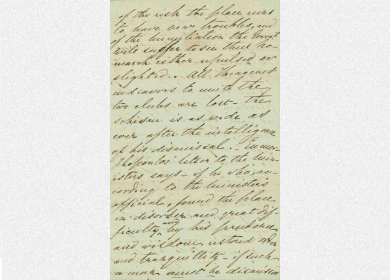 of the risk the place runs
to have new troubles, and
of the humiliation the Court
will suffer to see thus ho-
march either repulsed or
slighted. All
endeavors to unite the
two clubs are lost - the
schism is as wide as
ever after the intelligence
of his dismissal.
letter to the min-
isters says - if he who, ac-
cording to the ministers
official, found the place
in disorder and great dif-
ficulty, and by his prudence
and wisdom restored order
and tranquillity - if such
a man must be dismissed